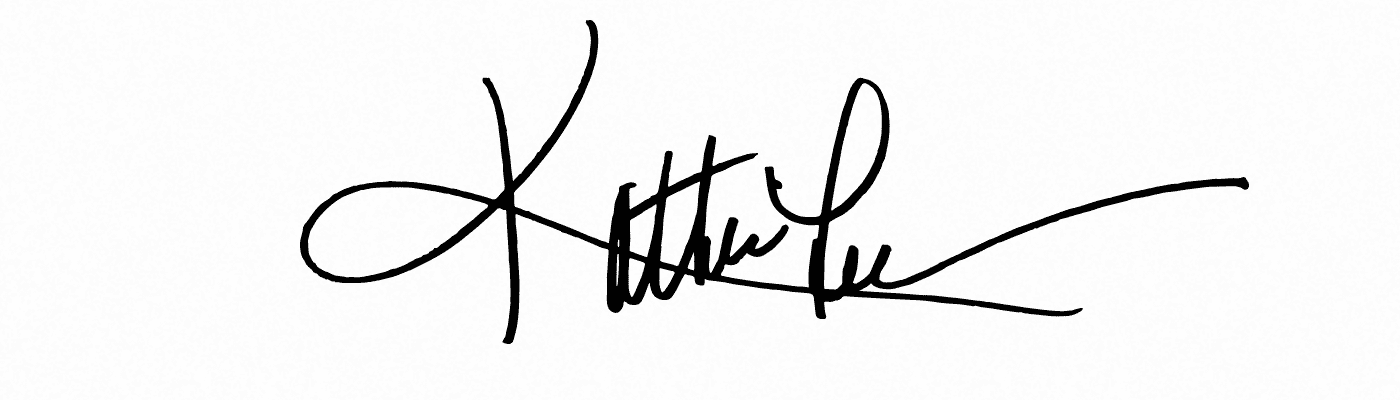 Kathie Lee